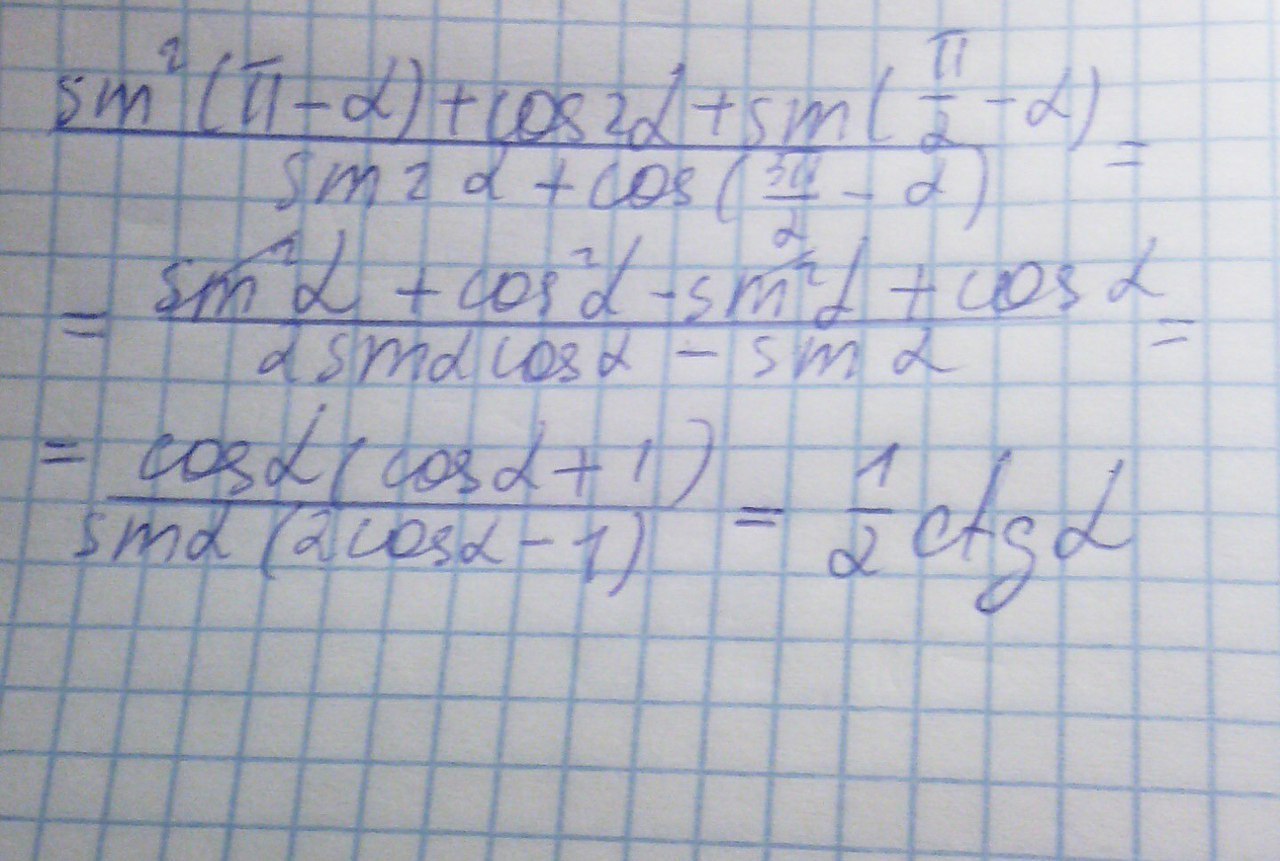 sin²(π-α)+cos2α+sin(π/2-α) / sin2α+cos(3π/2-α) =
= sin²α+cos²α-sin²α+cosα / 2sinαcosα-sinα =
= cosα(cosα+1) / sinα(2cosα-1) = 1/2 ctgα